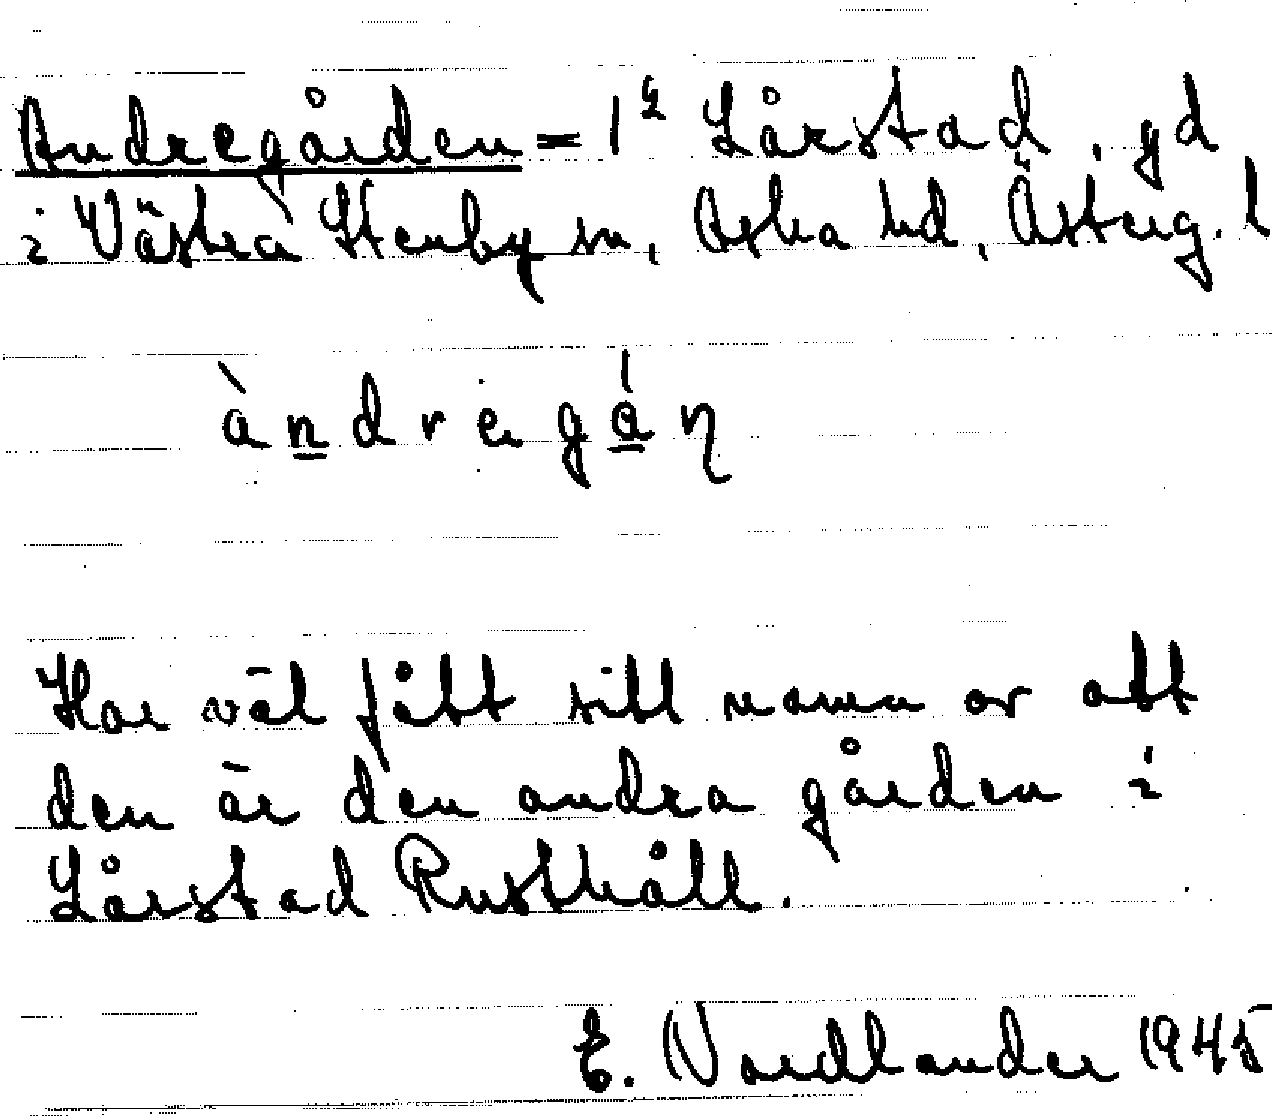 Andregården = 1 2 Lårstad, gd
i Västra Stenby sn, Aska hd, Österg. l
àndregán
Har väl fått sitt namn av att
den är den andra gården i
Lårstad Rusthåll.
E. Nordlander 1945